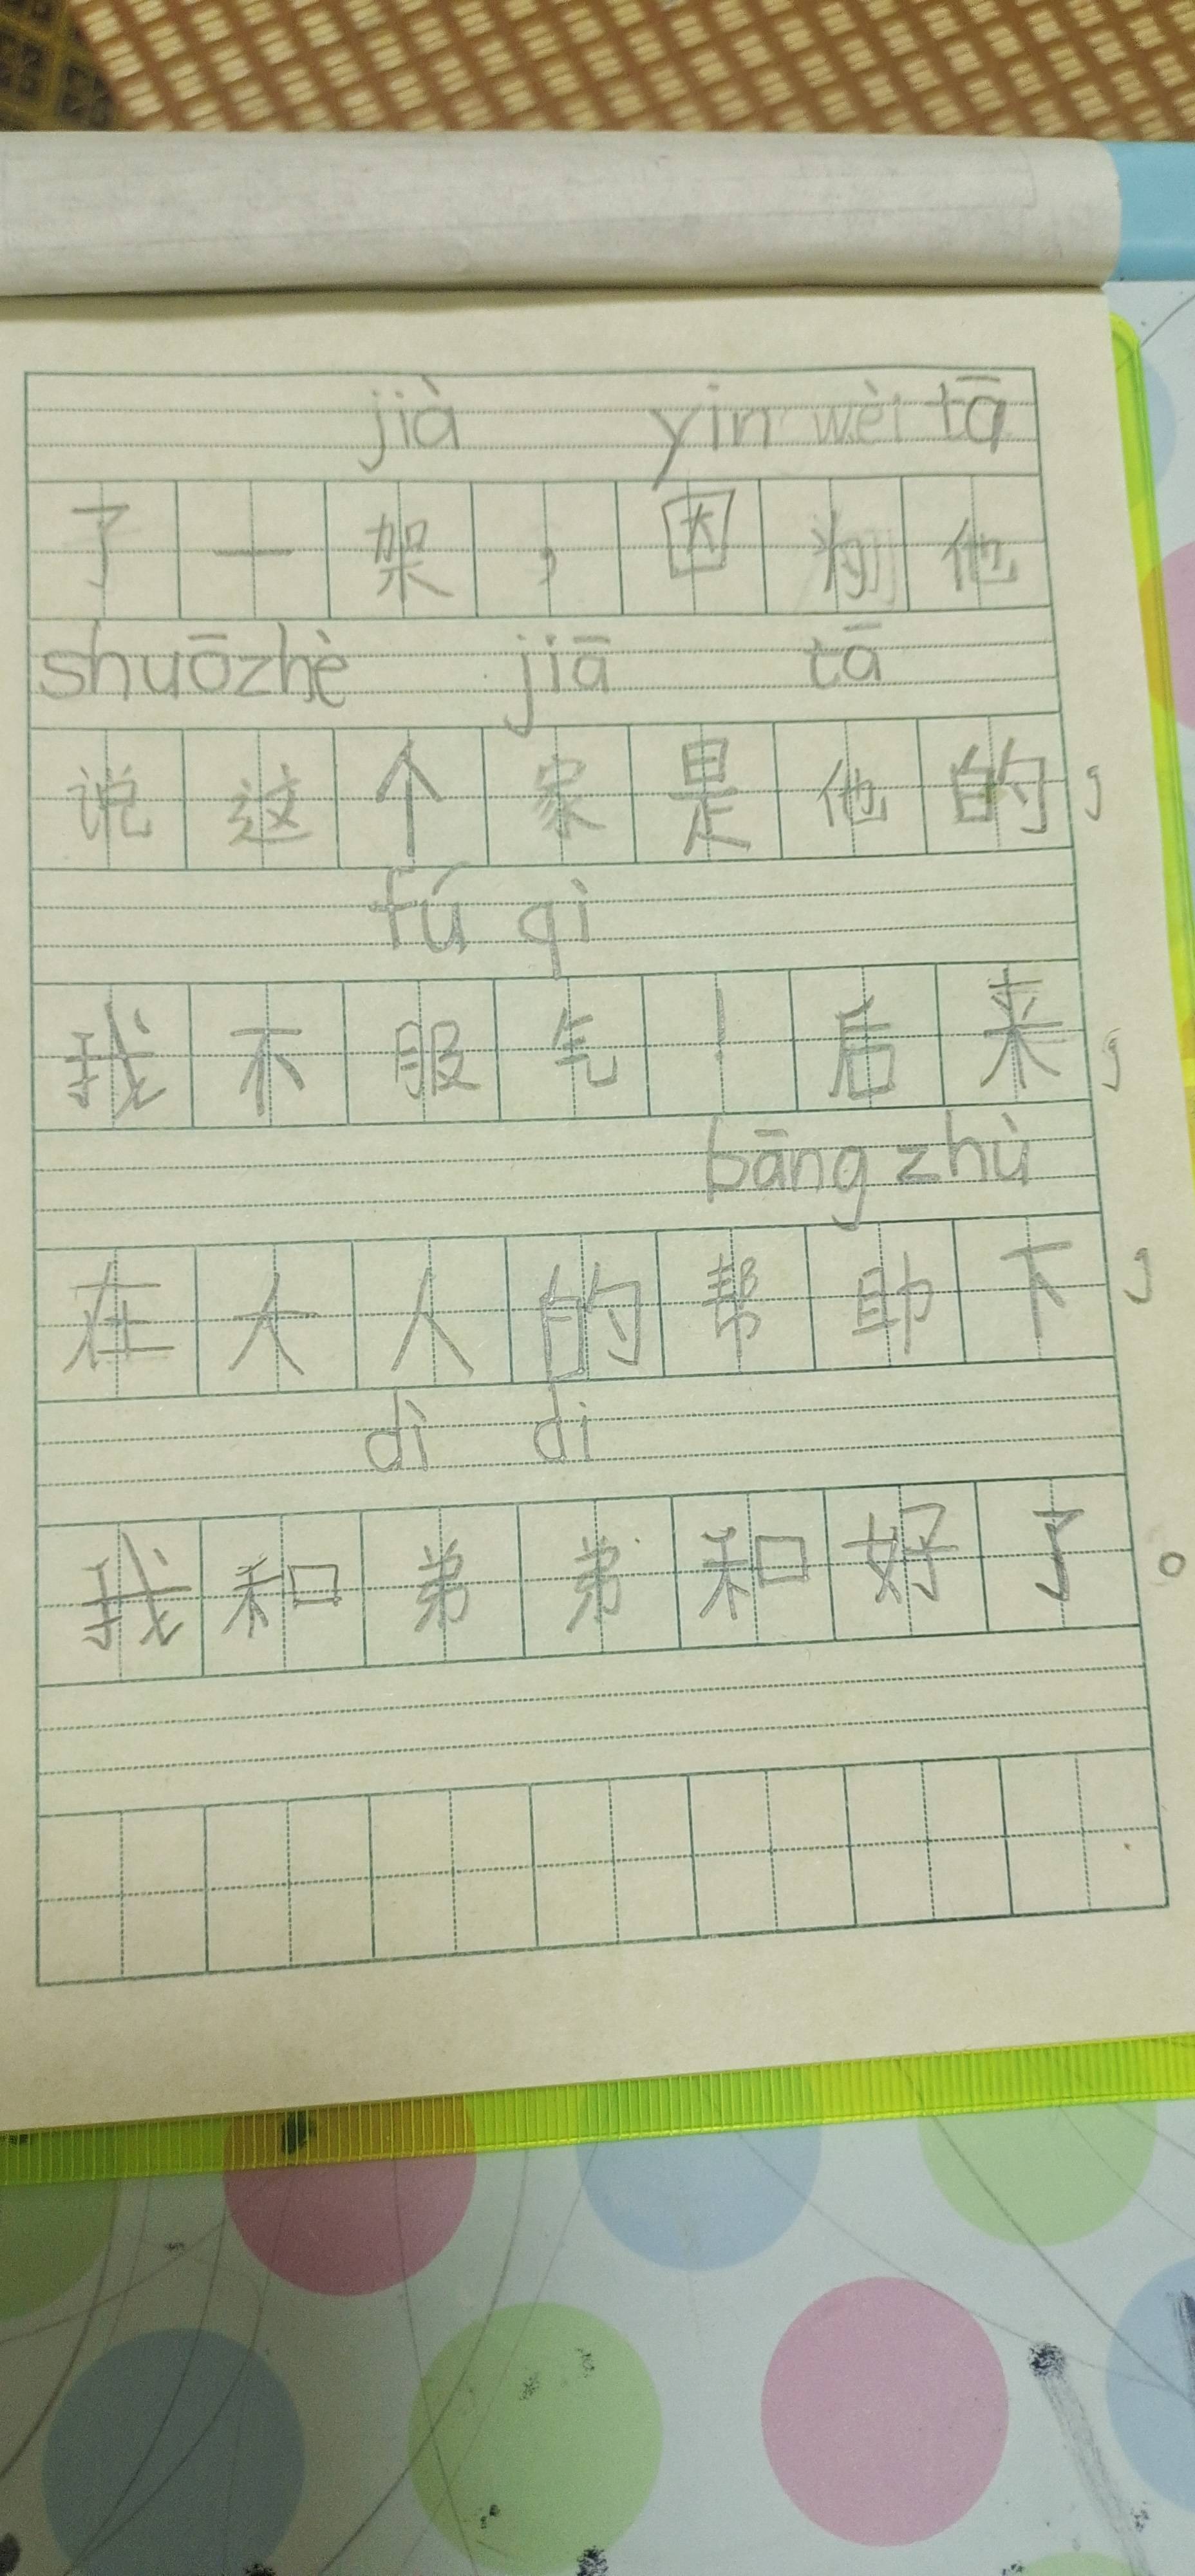 jià yin wèi tā
了一架，因为他
shuōzhè jiā tā
说这个家是他的，
fú qì
我不服气！后来，
bāng zhù
在大人的帮助下，
dì di
我和弟弟和好了。